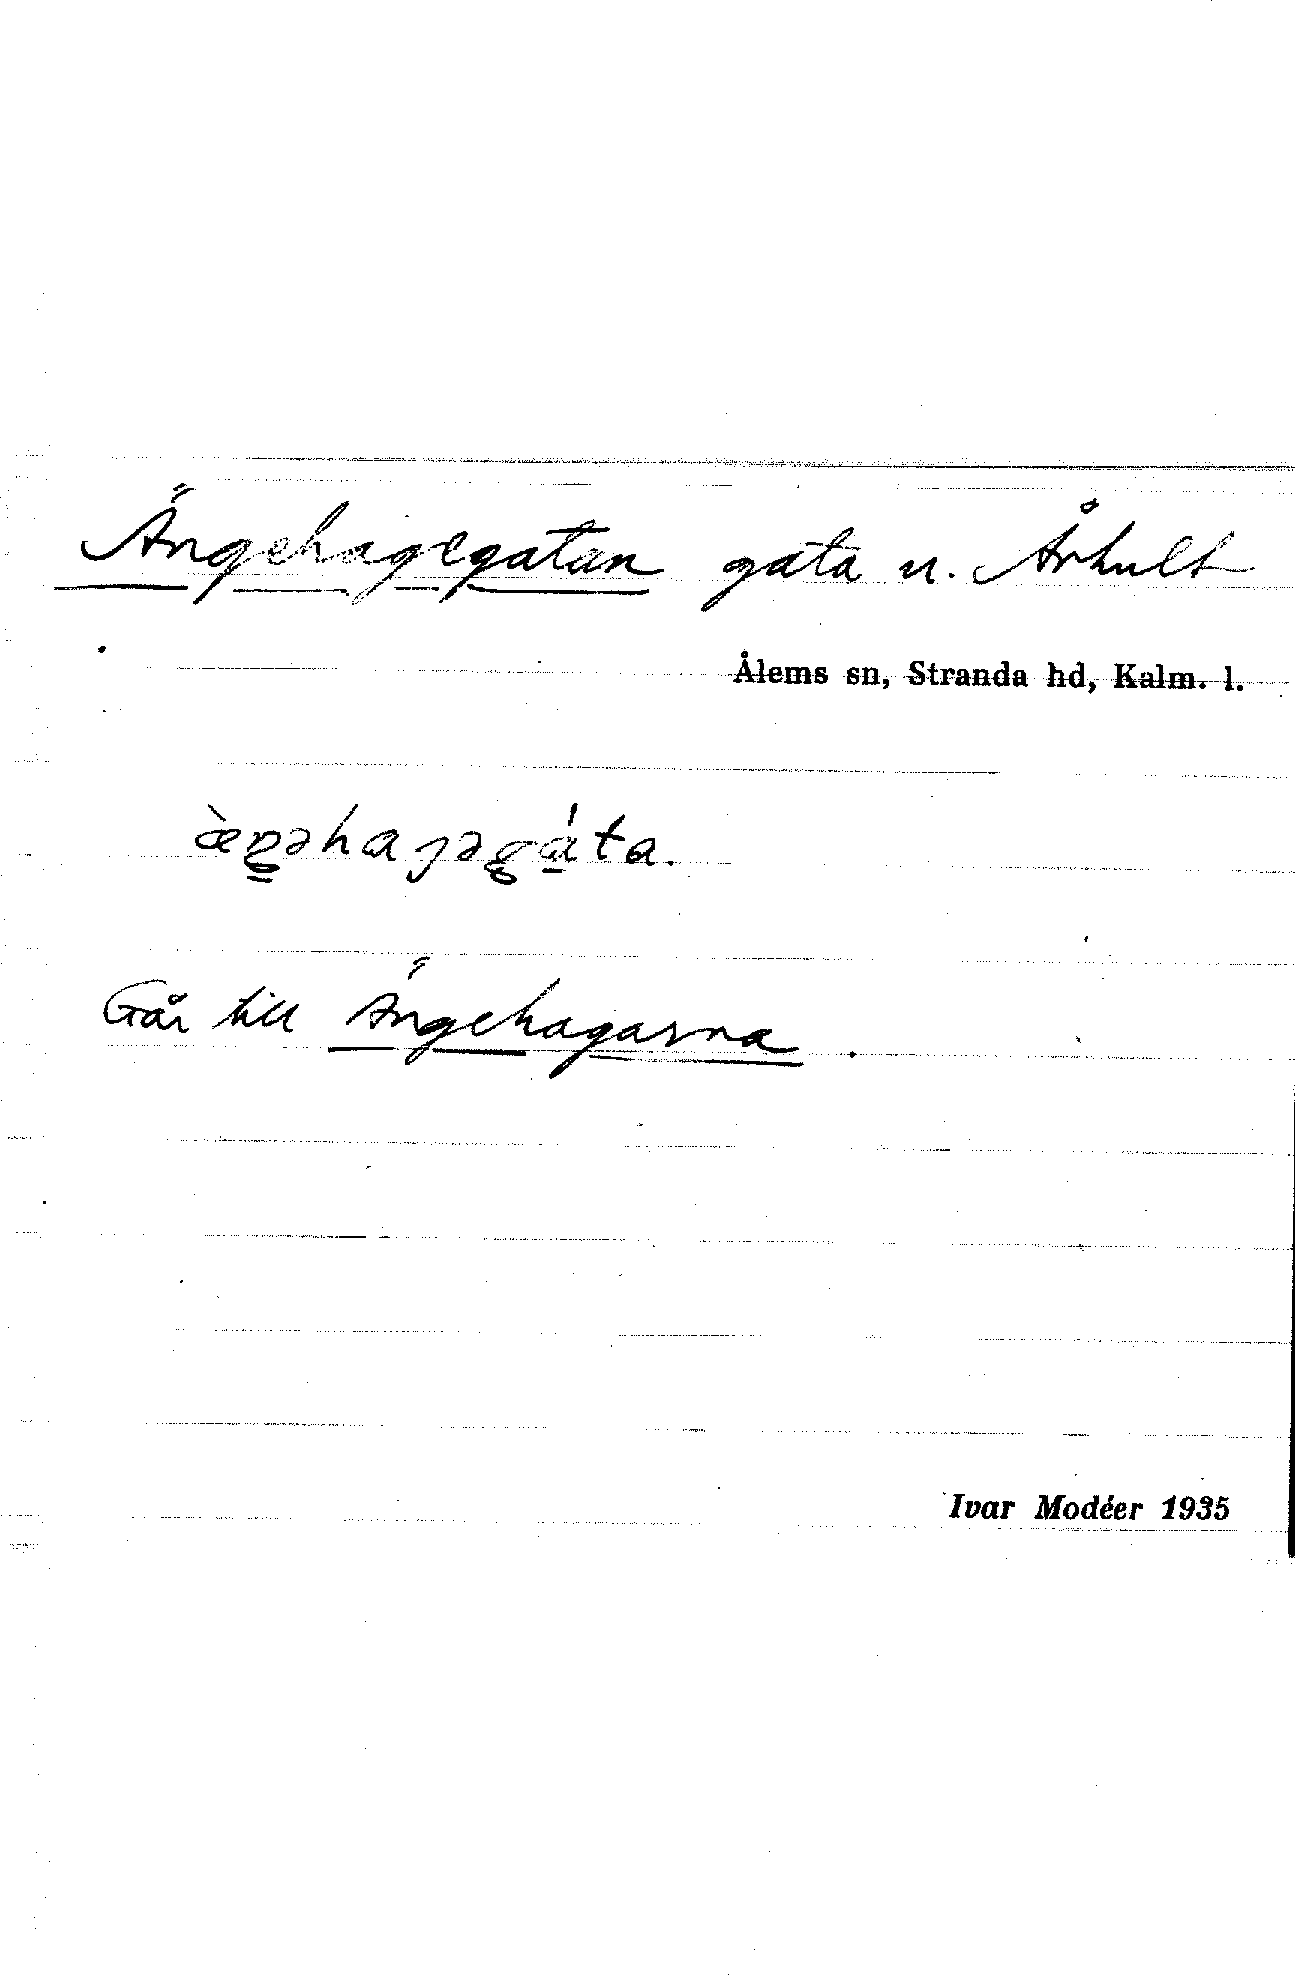 Ängehagegatan gata u. Århult
Ålems sn, Stranda hd, Kalm. l.
Går till Ängehagarna.
Ivar Modéer 1935